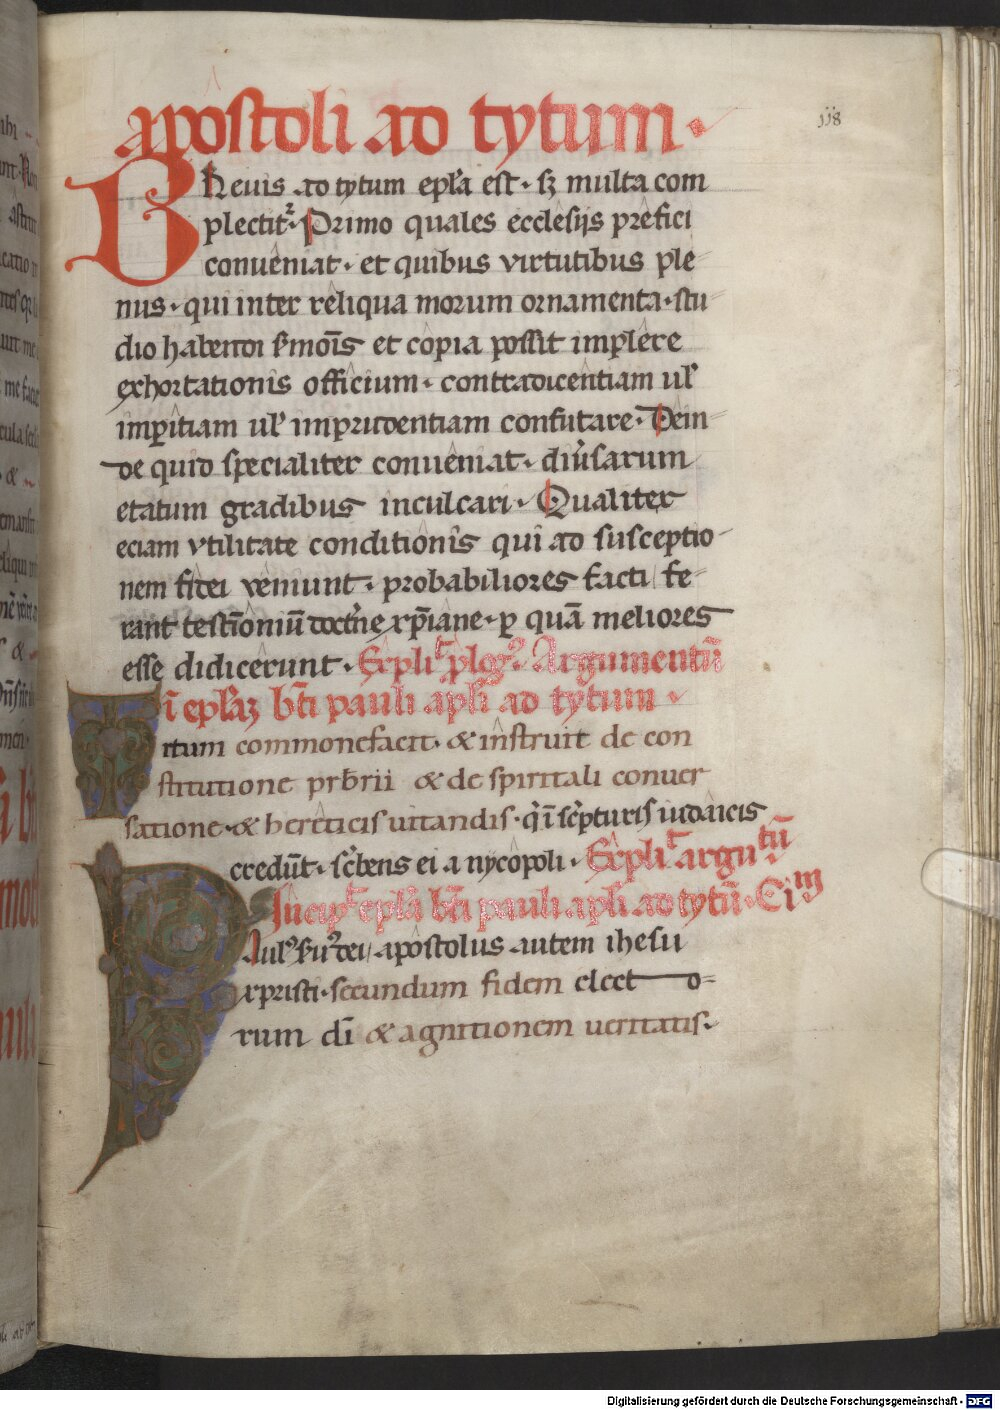 apostoli ad tytum.
118
Breuis ad tytum epl'a est. sꝫ multa com
plectit᷑. Primo quales ecclesijs prefici
conueniat. et quibus virtutibus ple-
nus. qui inter reliqua morum ornamenta. stu-
dio habendi s'mōis et copia possit implere
exhortationis officium. contradicentiam ul'
imperitiam ul' imprudentiam confutare. Dein-
de quid specialiter conueniat. diu'sarum
etatum gradibus inculcari. Qualiter
eciam vtilitate conditionis qui ad susceptio-
nem fidei veniunt. probabiliores facti fe-
rant testīoniū doct'ne xp̄iane. ꝑ quā meliores
esse didicerunt. Explicit plogꝰ. Argumentū
ī epl'aꝫ bt̄i pauli apl'i ad tytum.
Titum commonefacit. & instruit de con
stitutione prb̄rii & de spiritali conuer
satione. & hereticis uitandis. q'ī sc'pturis iudaicis
credūt. sc'bens ei a nycopoli. Explicit argutū
Incipit epl'a bt̄i pauli apl'i ad tytū. Cim
Paulꝰ s'uꝰ dei, apostolus autem ihesu
xpristi. secundum fidem elect o-
rum dī & agnitionem ueritatis.
Digitalisierung gefördert durch die Deutsche Forschungsgemeinschaft - DFG